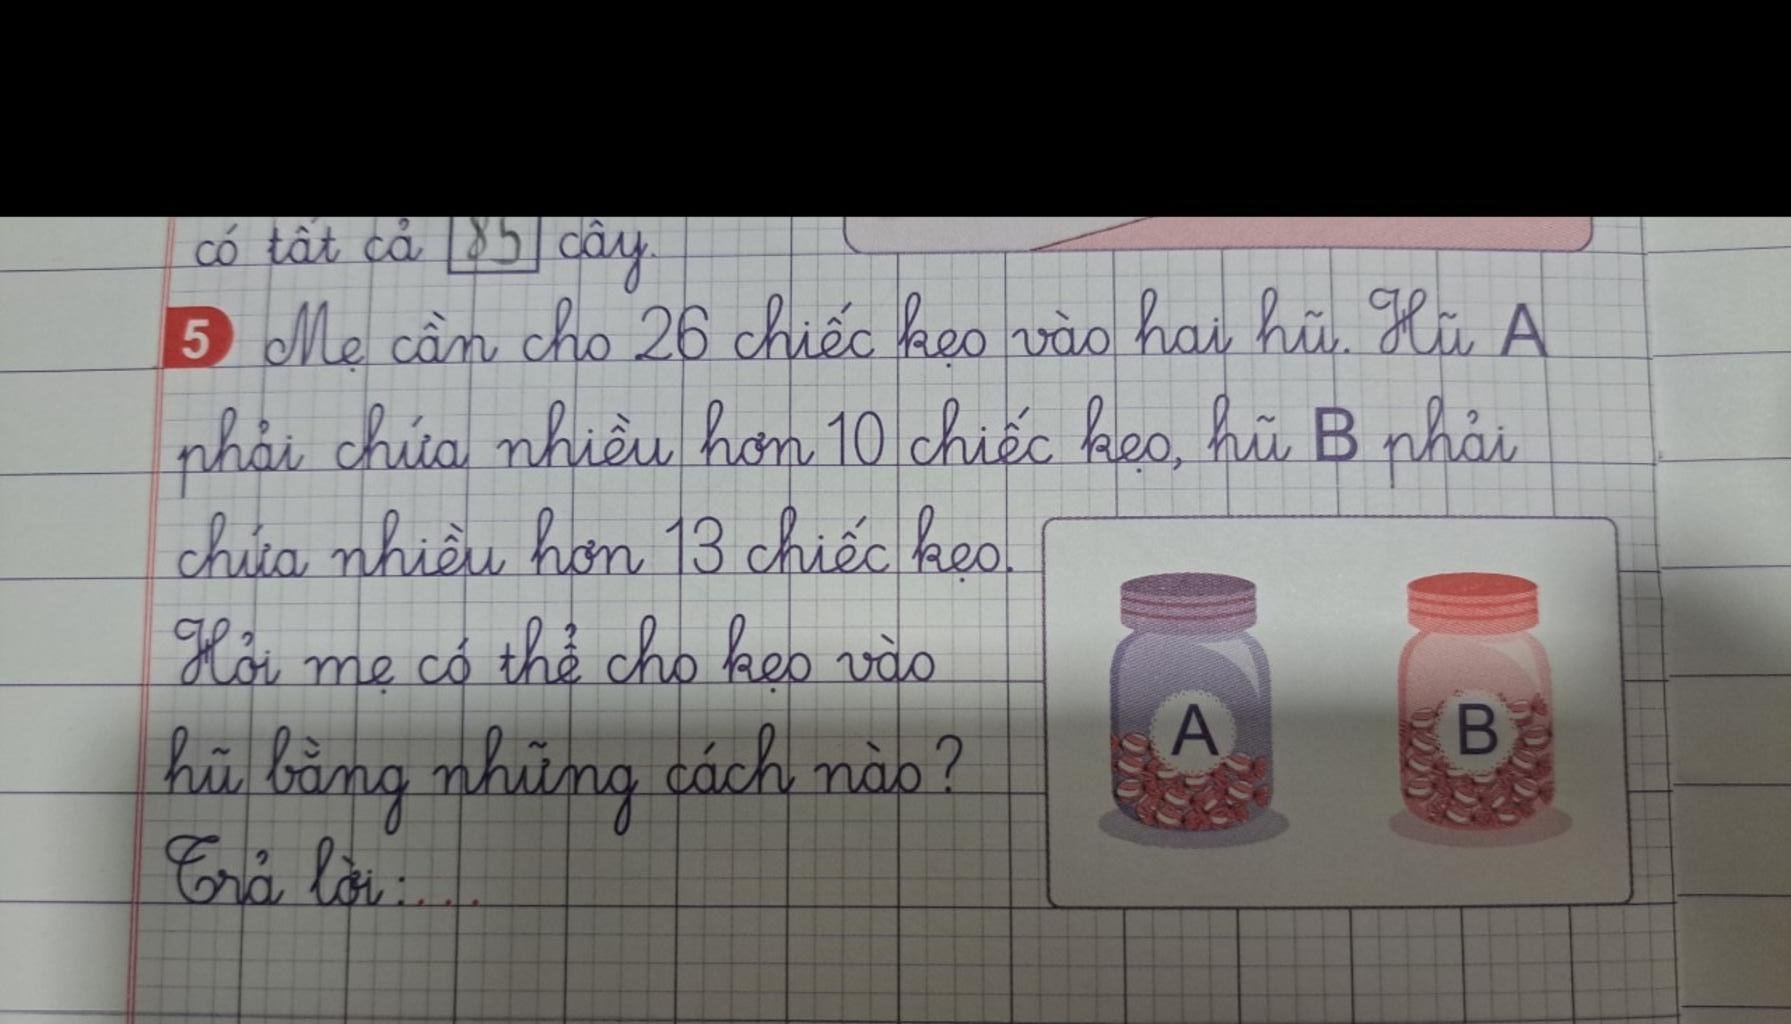 có tất cả 85 cây.
5 Mẹ cần cho 26 chiếc kẹo vào hai hũ. Hũ A
phải chứa nhiều hơn 10 chiếc kẹo, hũ B phải
chứa nhiều hơn 13 chiếc kẹo.
Hỏi mẹ có thể cho kẹo vào
hũ bằng những cách nào?
Trả lời:....
A
B